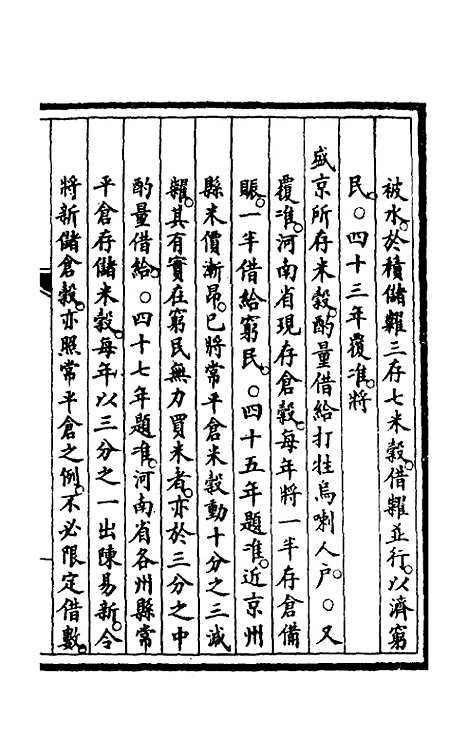 被水。於積儲糶三存七米穀。借糶並行。以濟窮
民。○四十三年覆准。將
盛京所存米穀。酌量借給打牲烏喇人户。○又
覆准。河南省現存倉穀。每年將一半存倉備
賑。一半借給窮民。○四十五年題准。近京州
縣米價漸昂。已將常平倉米穀動十分之三減
糶。其有實在窮民無力買米者。亦於三分之中
酌量借給。○四十七年題准。河南省各州縣常
平倉存儲米穀。每年以三分之一出陳易新。令
將新儲倉穀。亦照常平倉之例。不必限定借數。